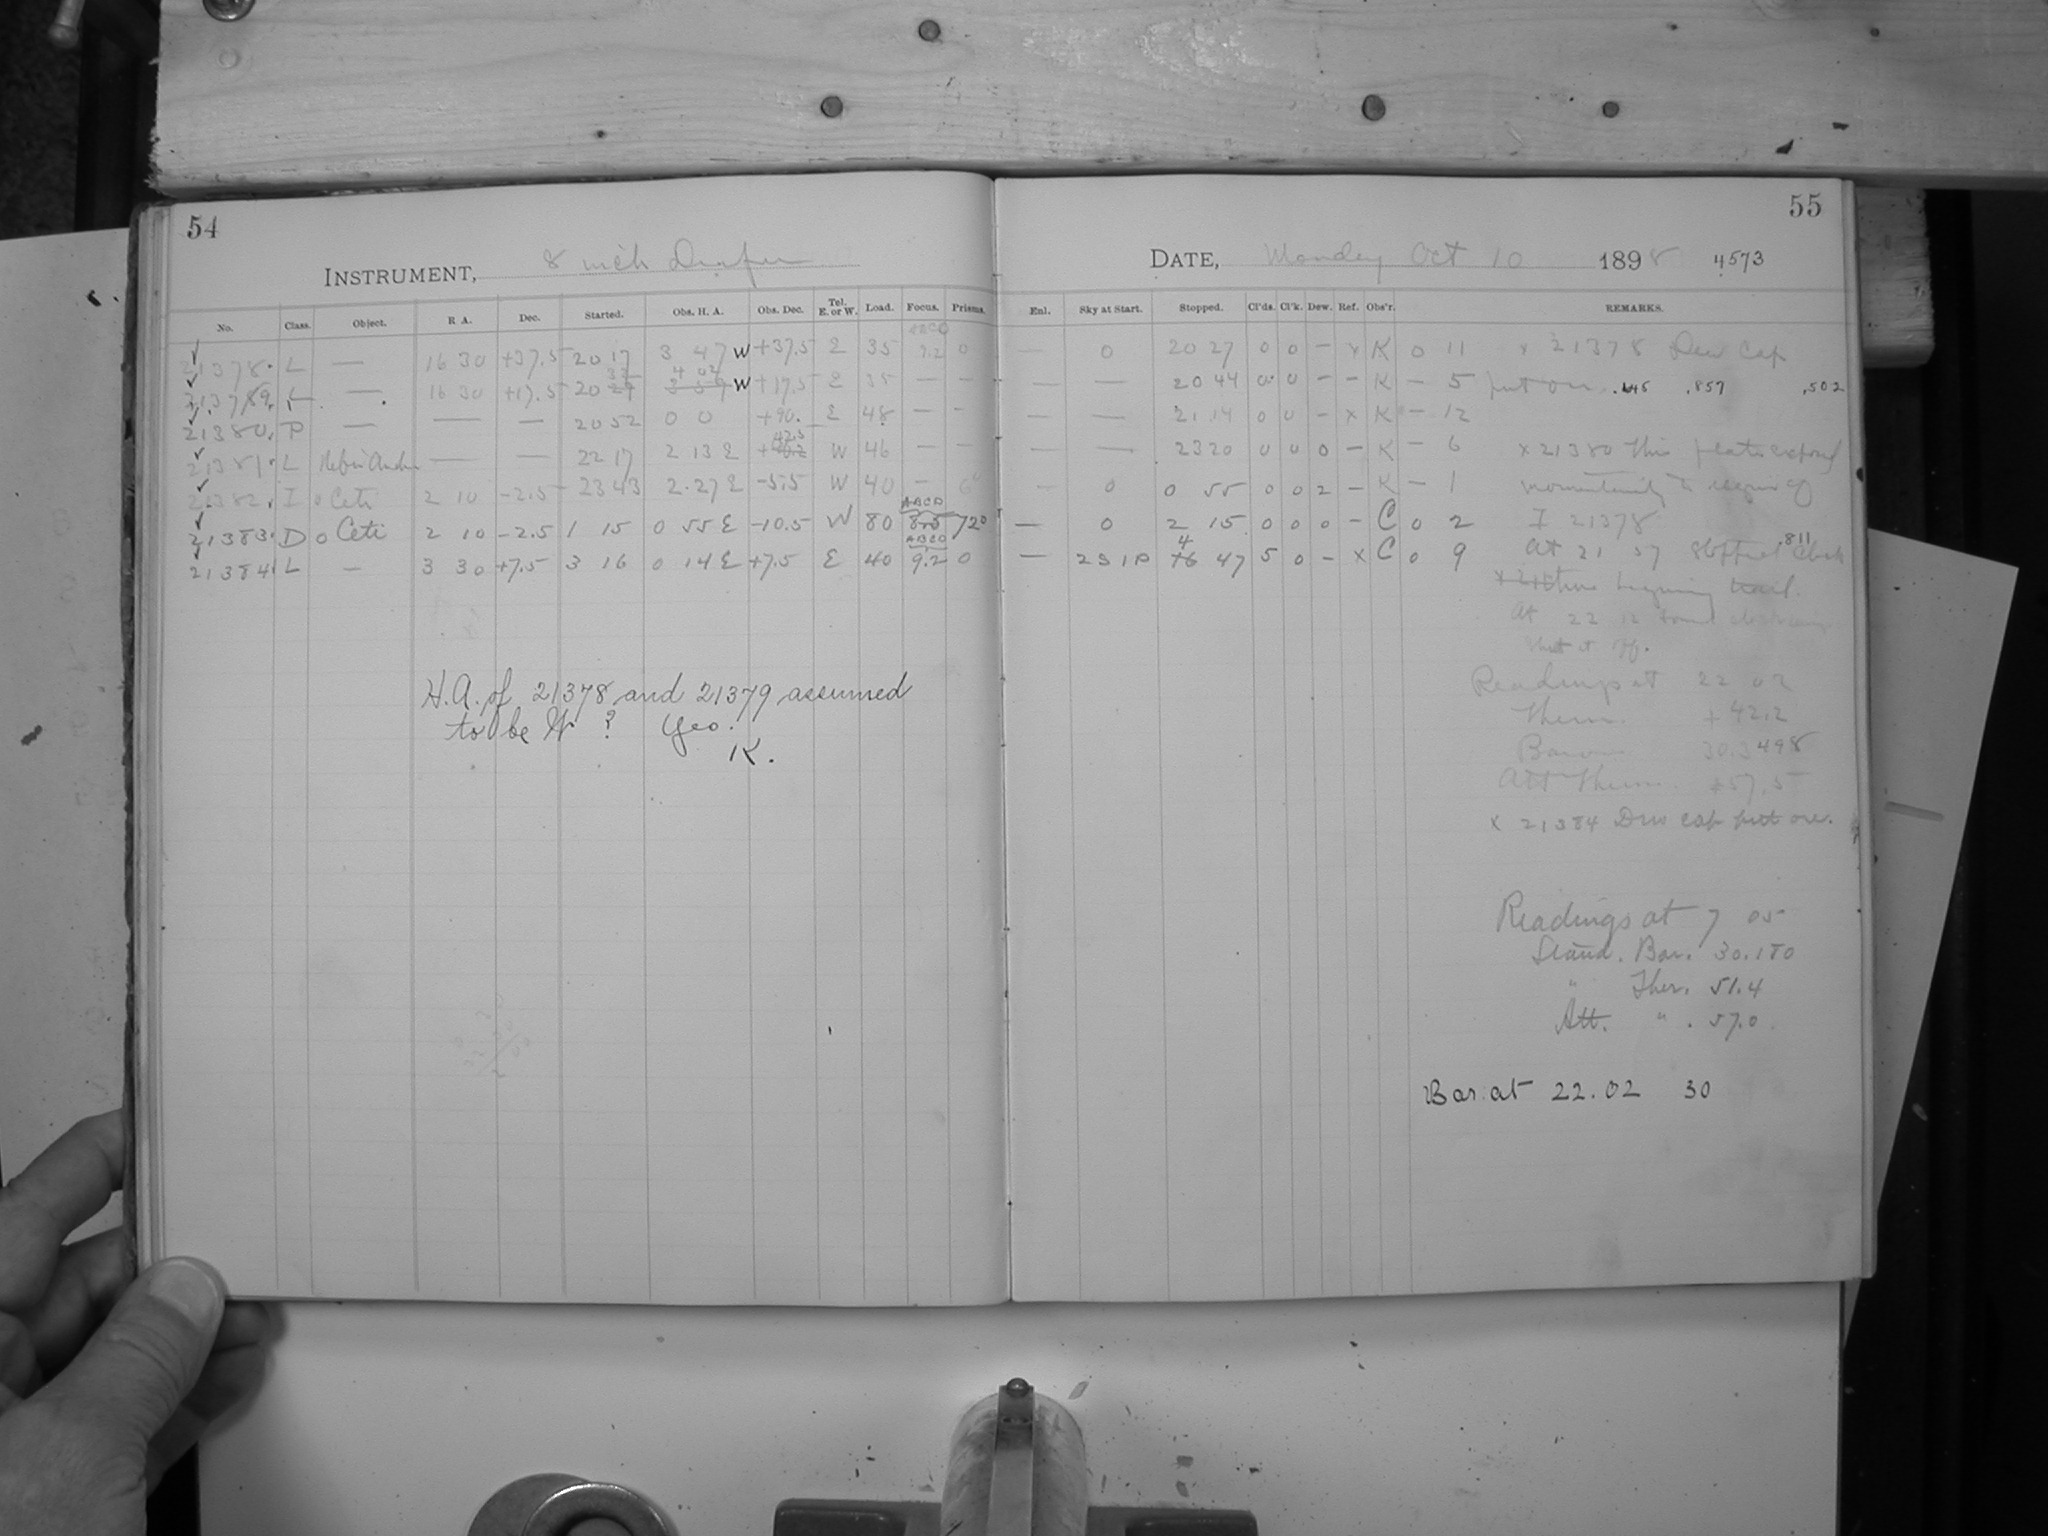 54
INSTRUMENT, 8 inch Draper
No. Class. Object. R A. Dec. Started. Obs. H. A. Obs. Dec. Tel. E. or W. Load. Focus. Prisms.
ABCD
21378. L — 16 30 +37.5 20 17 3 47 W +37.5 E 35 9.2 0
32 4 02
21379. L — 16 30 +17.5 20 29 3 59 W +17.5 E 35 — —
21380. P — — — 20 52 0 0 +90. E 48 — —
42.5
21381. L — — 22 17 2 13 E W 46 — —
21382. I o Ceti 2 10 -2.5 23 43 2.27 E -5.5 W 40 —
ABCD
21383. D o Ceti 2 10 -2.5 1 15 0 55 E -10.5 W 80 720
ABCD
21384. L — 3 30 +7.5 3 16 0 14 E +7.5 E 40 9.2 0
H.A. of 21378 and 21379 assumed
to be W ? Yes.
K.
55
DATE, Monday Oct 10 1898 4573
Enl. Sky at Start. Stopped. Cl'ds. Cl'k. Dew. Ref. Obs'r. REMARKS.
— 0 20 27 0 0 — x K 0 11 x 21378 Dew Cap
— — 20 44 0 0 — — K — 5 put on .857 .502
— — 21 14 0 0 — x K — 12
— — 23 20 0 0 0 — K — 6 x 21380 This plate exposed
— 0 0 55 0 0 2 — K — 1 momentarily
— 0 2 15 0 0 0 — C 0 2 I 21378
4 .811
— 2S1P 16 47 5 0 — x C 0 9 At 21 57 stopped clock
beginning trail.
At 22 12 found
shut it off.
Readings at 22 02
Therm. + 42.2
Barom 30.3498
Att Therm. +57.5
x 21384 Dew cap put on.
Readings at 7 05
Stand. Bar. 30.180
" Ther. 51.4
Att. " . 57.0
Bar. at 22.02 30